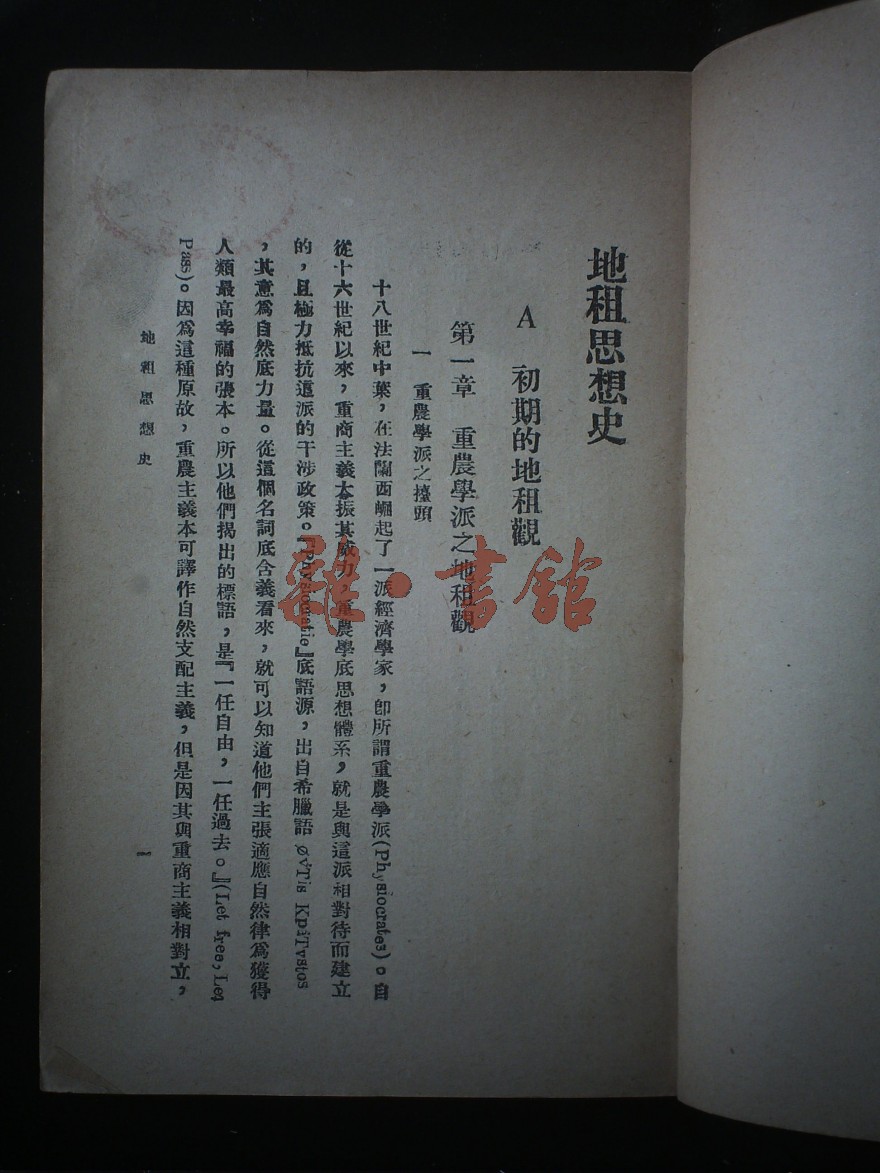 地租思想史
A 初期的地租觀
第一章 重農學派之地租觀
一 重農學派之擡頭
十八世紀中葉，在法蘭西崛起了一派經濟學家，卽所謂重農學派(Physiocrates)。自
從十六世紀以來，重商主義大振其威力，重農學底思想體系，就是與這派相對待而建立
的，且極力抵抗這派的干涉政策。『Physiocratie』底語源，出自希臘語 φvTis KpiTvstos
，其意爲自然底力量。從這個名詞底含義看來，就可以知道他們主張適應自然律爲獲得
人類最高幸福的張本。所以他們揭出的標語，是『一任自由，一任過去。』(Let free, Let
Pass)。因爲這種原故，重農主義本可譯作自然支配主義，但是因其與重商主義相對立，
地租思想史
一
雜·書館